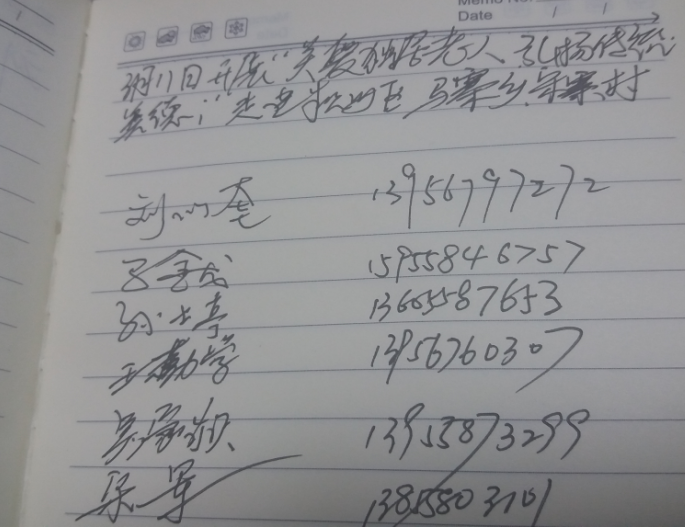 Memo No.
Date / /
月11日开展“关爱独居老人、弘扬传统
美德”走进 马寨乡 寨村
刘 13956797272
金成 15955846757
孙士亭 13605587653
王勤学 13956760307
吴家 13955873299
梁军 13855803101